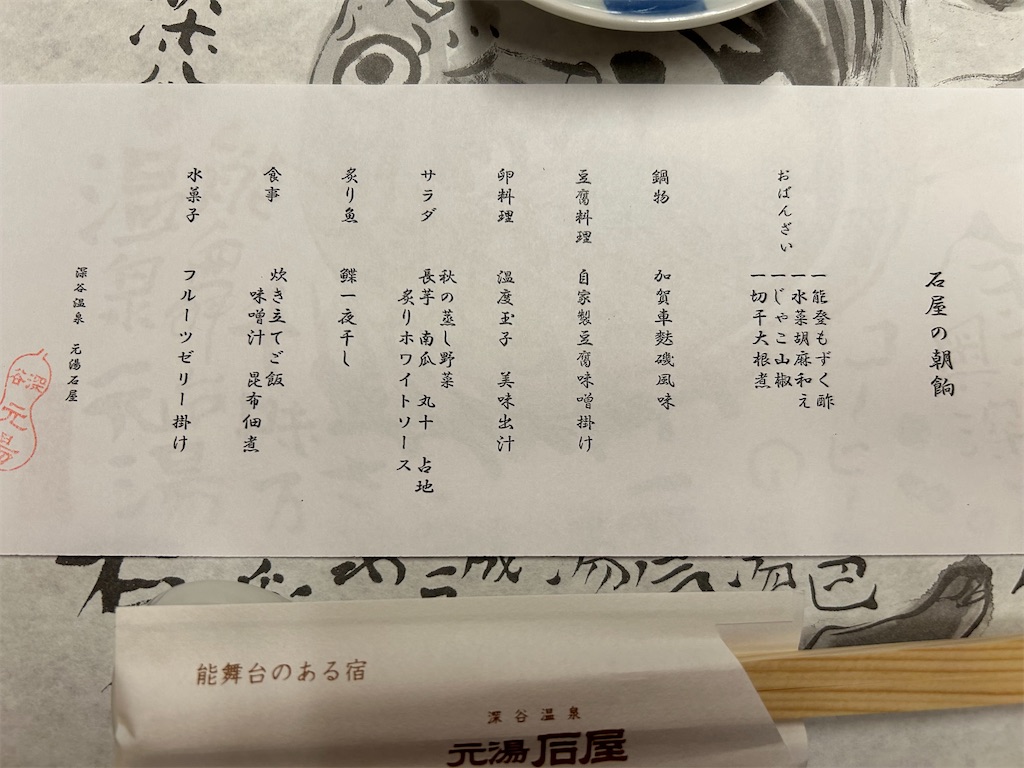 石屋の朝餉
おばんざい
一能登もずく酢
一水菜胡麻和え
一じゃこ山椒
一切干大根煮
鍋物 加賀車麩磯風味
豆腐料理 自家製豆腐味噌掛け
卵料理 温度玉子 美味出汁
サラダ 秋の蒸し野菜
長芋 南瓜 丸十 占地
炙りホワイトソース
炙り魚 鰈一夜干し
食事 炊き立てご飯
味噌汁 昆布佃煮
水菓子 フルーツゼリー掛け
深谷温泉 元湯石屋
深谷
元湯
能舞台のある宿
深谷温泉
元湯石屋